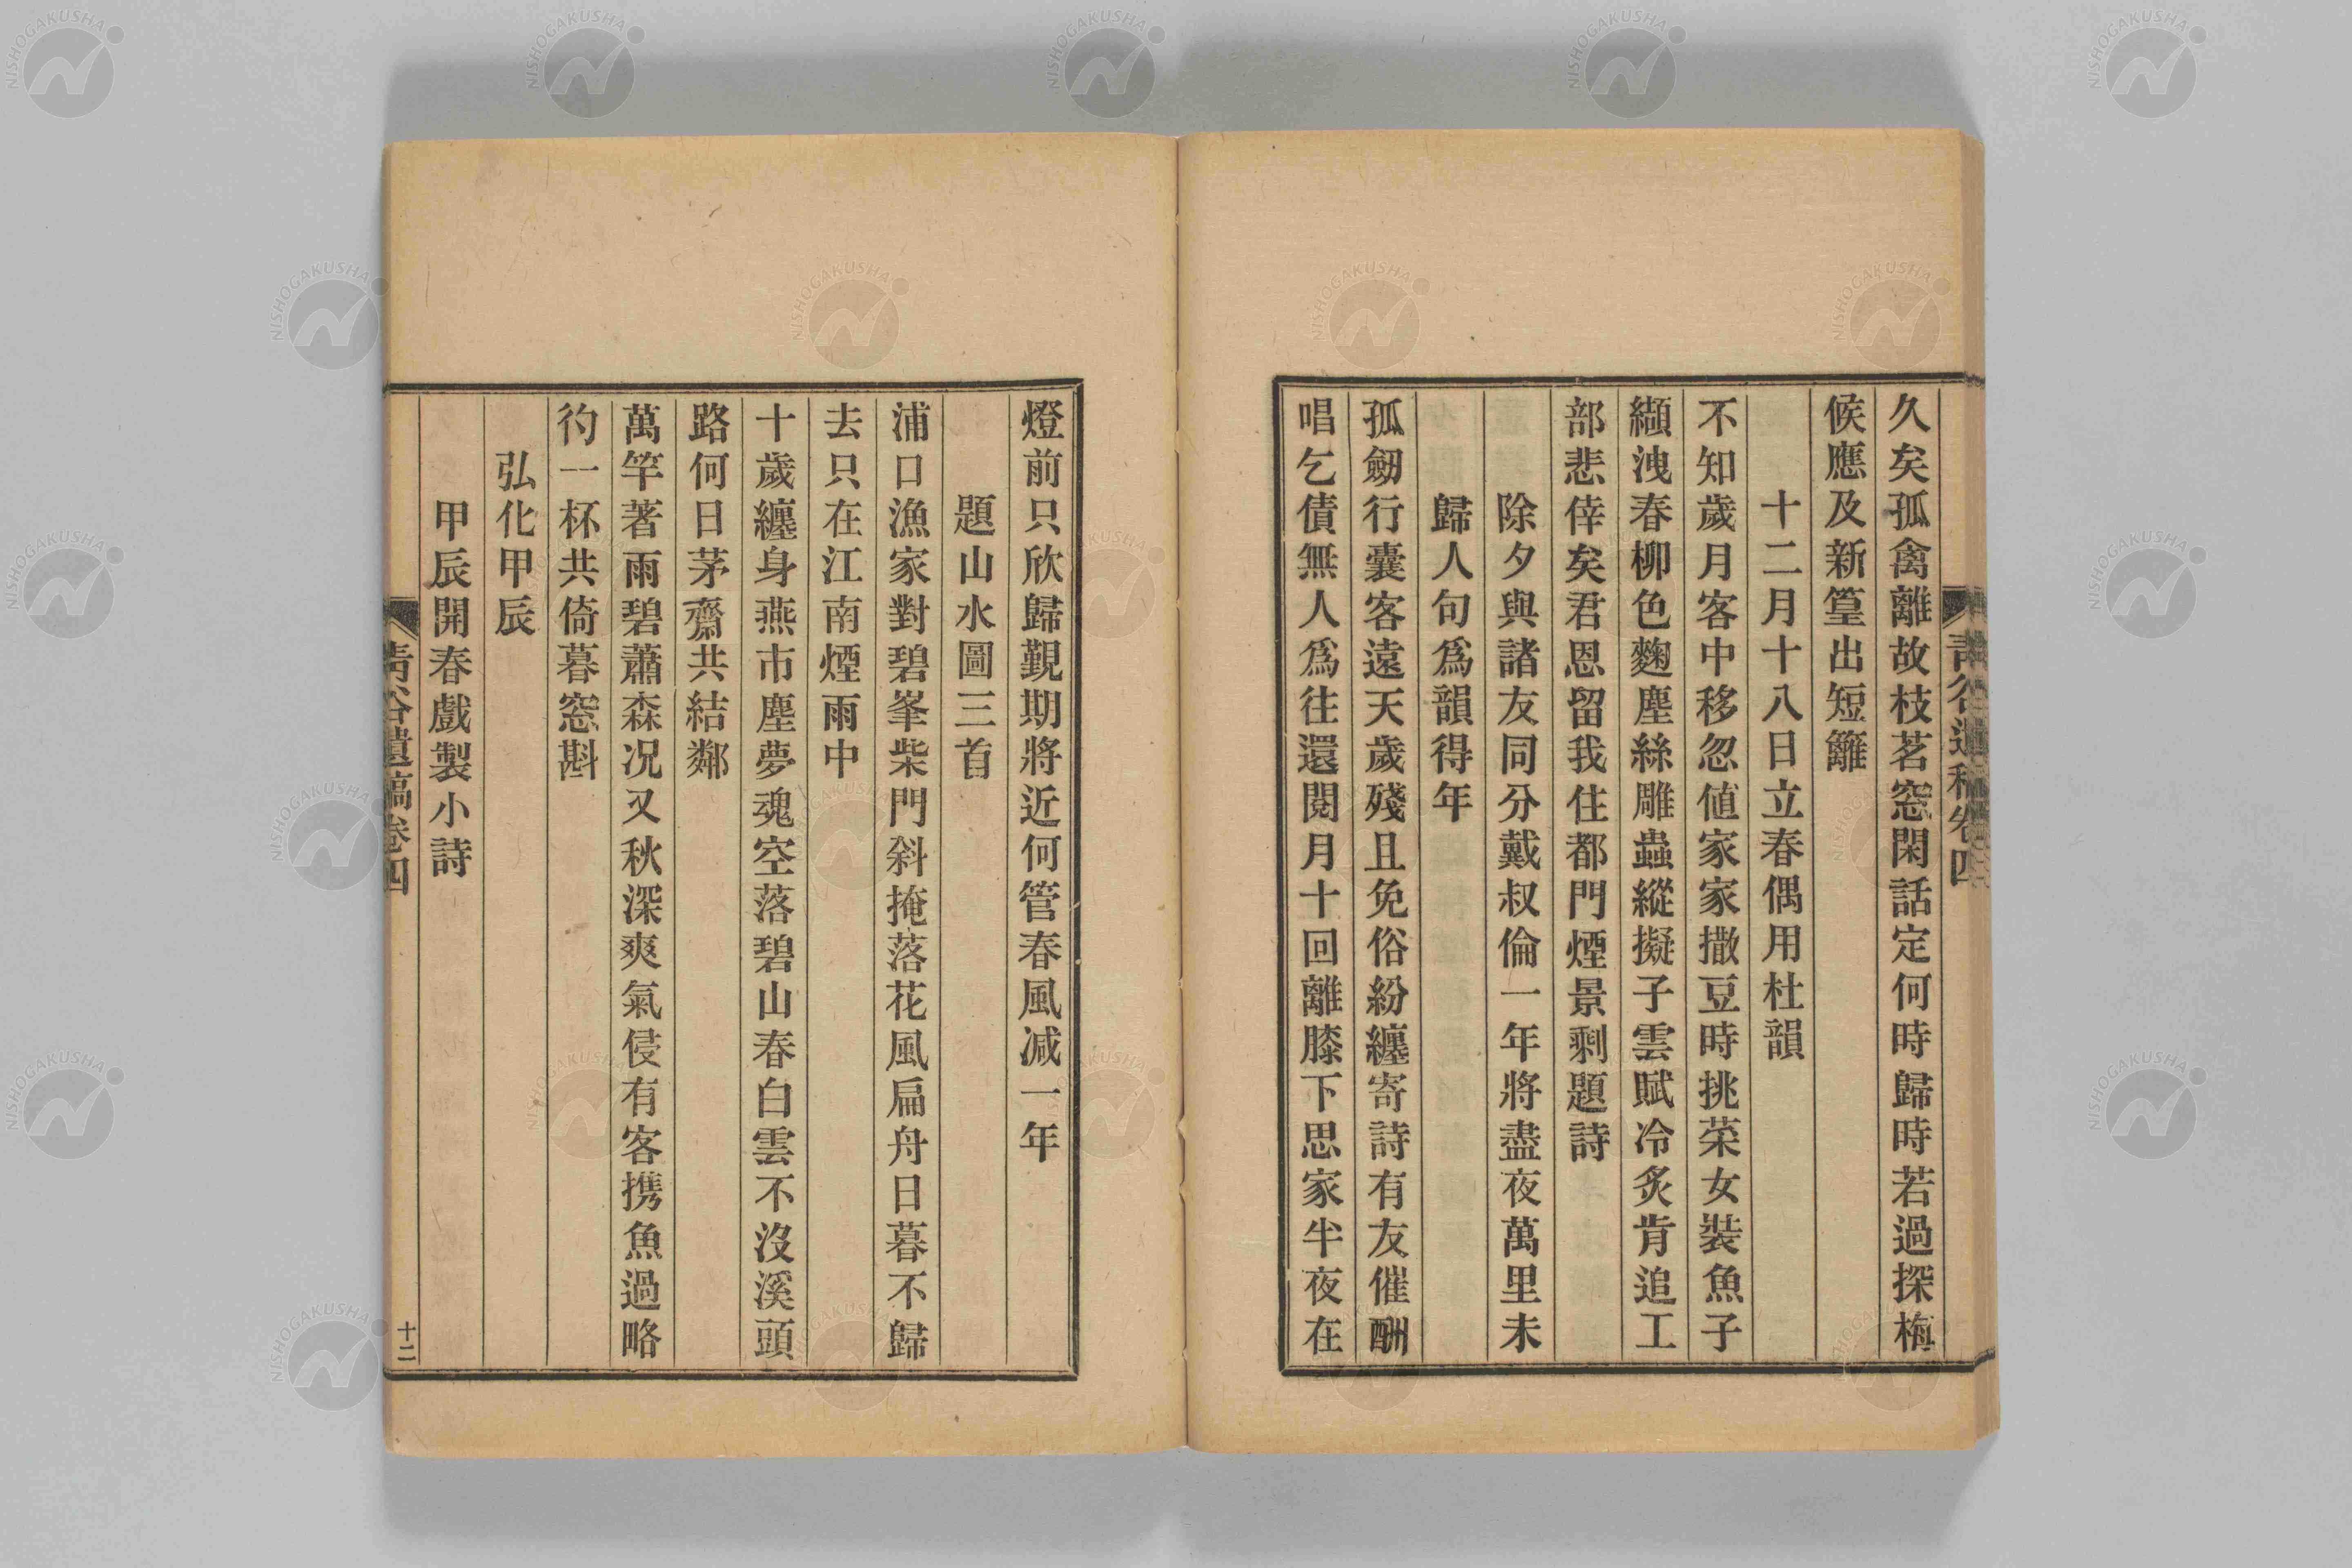 久矣孤禽離故枝茗窓閑話定何時歸時若過探梅
候應及新篁出短籬
十二月十八日立春偶用杜韻
不知歲月客中移忽値家家撒豆時挑菜女裝魚子
纈洩春柳色麴塵絲雕蟲縱擬子雲賦冷炙肯追工
部悲倖矣君恩留我住都門煙景剩題詩
除夕與諸友同分戴叔倫一年將盡夜萬里未
歸人句爲韻得年
孤劒行囊客遠天歲殘且免俗紛纏寄詩有友催酬
唱乞債無人爲往還閱月十回離膝下思家半夜在
青谷遺稿卷四
燈前只欣歸覲期將近何管春風減一年
題山水圖三首
浦口漁家對碧峯柴門斜掩落花風扁舟日暮不歸
去只在江南煙雨中
十歲纏身燕市塵夢魂空落碧山春白雲不沒溪頭
路何日茅齋共結鄰
萬竿著雨碧蕭森况又秋深爽氣侵有客携魚過略
彴一杯共倚暮窓斟
弘化甲辰
甲辰開春戲製小詩
青谷遺稿卷四
十二
NISHOGAKUSHA